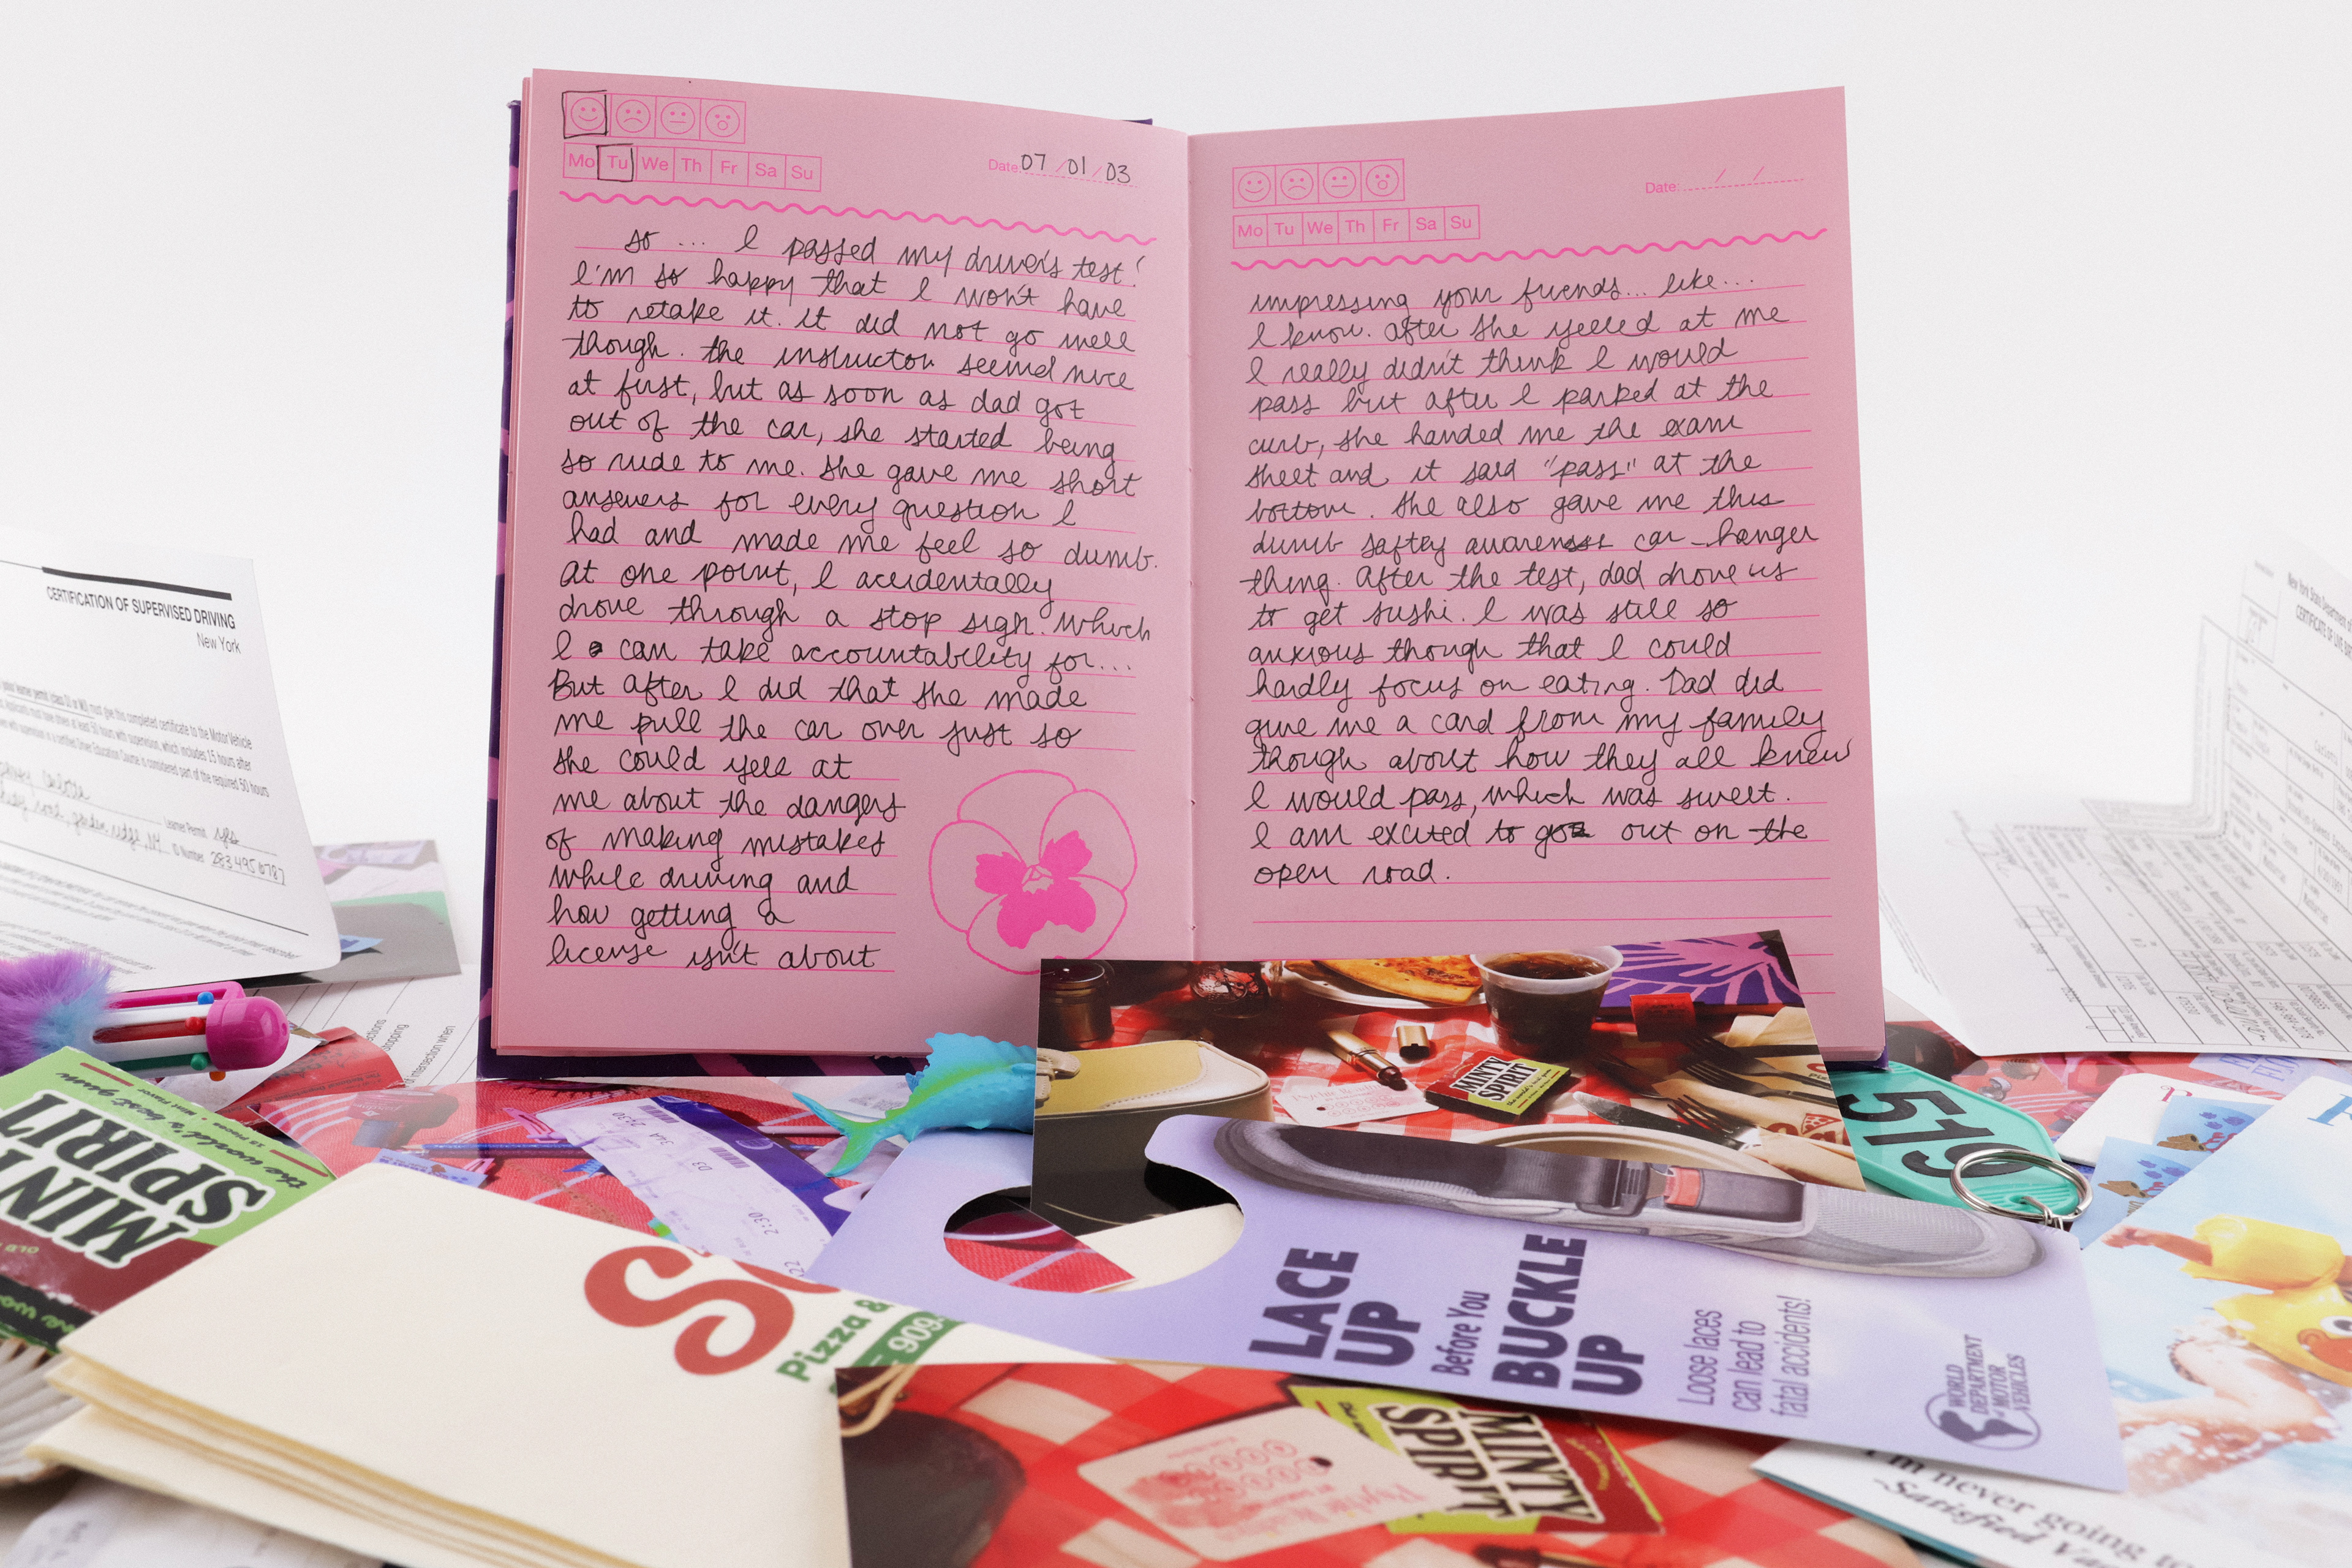 Mo Tu We Th Fr Sa Su
Date: 07/01/03
so ... I passed my driver's test!
I'm so happy that I won't have
to retake it. it did not go well
though. the instructor seemed nice
at first, but as soon as dad got
out of the car, she started being
so rude to me. she gave me short
answers for every question I
had and made me feel so dumb.
at one point, I accidentally
drove through a stop sign. which
I can take accountability for...
But after I did that she made
me pull the car over just so
she could yell at
me about the dangers
of making mistakes
while driving and
how getting a
license isn't about
Mo Tu We Th Fr Sa Su
Date: / /
impressing your friends... like...
I know. after she yelled at me
I really didn't think I would
pass but after I parked at the
curb, she handed me the exam
sheet and it said "pass" at the
bottom. she also gave me this
dumb saftey awareness car-hanger
thing. after the test, dad drove us
to get sushi. I was still so
anxious though that I could
hardly focus on eating. Dad did
give me a card from my family
though about how they all knew
I would pass, which was sweet.
I am excited to go out on the
open road.
CERTIFICATION OF SUPERVISED DRIVING
New York
must give this completed certificate to the Motor Vehicle
hours with supervision, which includes 15 hours after
Driver Education Course is considered part of the required 50 hours
Learner Permit
ID Number
New York State Department of
CERTIFICATE OF LIVE
MINTY
SPIRIT
519
the world's best gum
15 Pieces • Mint Flavor
MIN
SPIRIT
34A 2:30
D3
2:30
Pizza &
909
LACE
UP
Before You
BUCKLE
UP
Loose laces
can lead to
fatal accidents!
WORLD
DEPARTMENT
of MOTOR
VEHICLES
MINTY
SPIRIT
I'm never going
-Satisfied